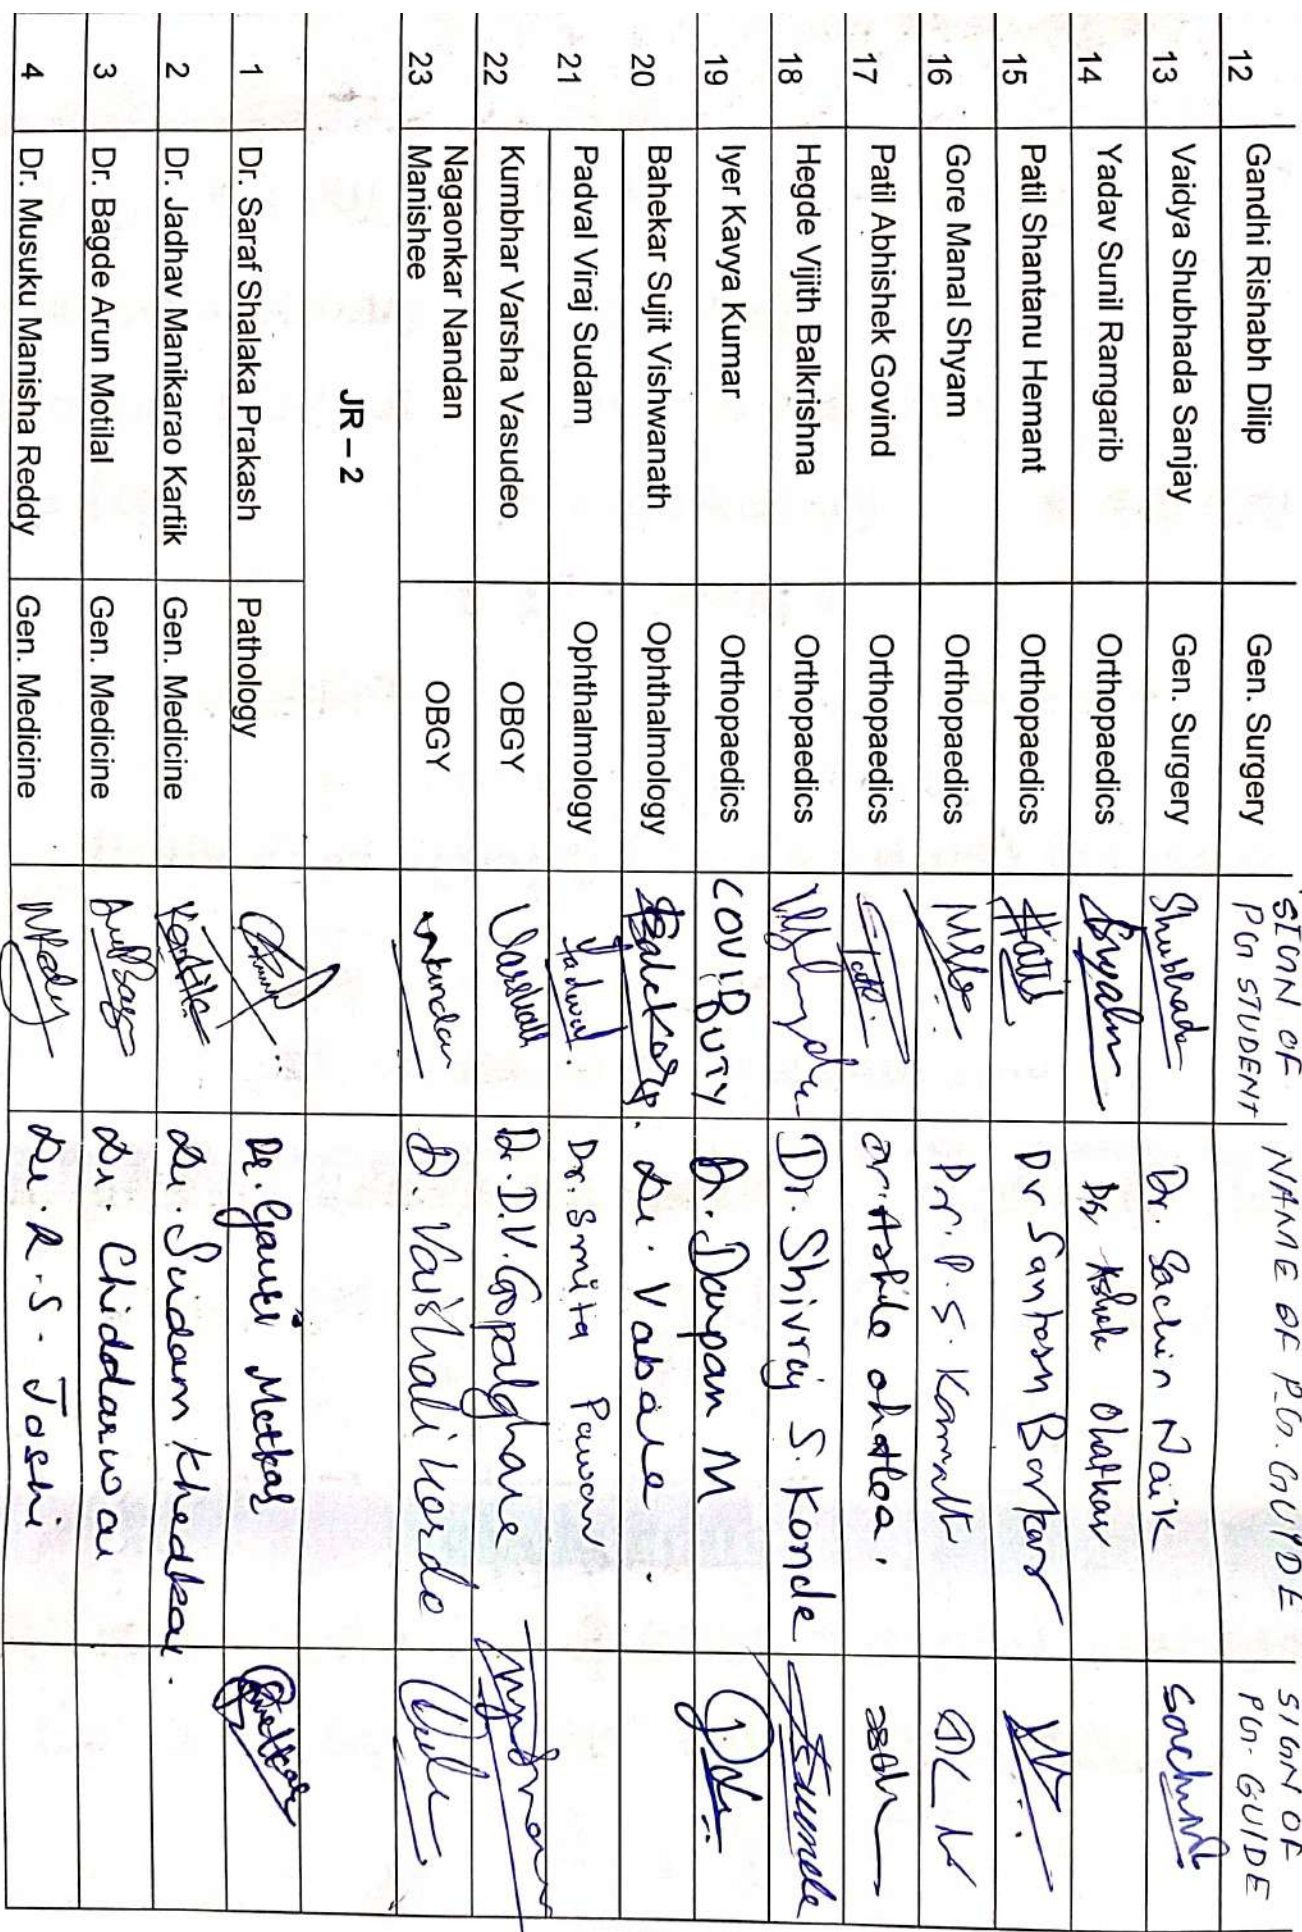 SIGN OF PG STUDENT NAME OF P.G. GUIDE SIGN OF PG. GUIDE
12 Gandhi Rishabh Dilip Gen. Surgery
13 Vaidya Shubhada Sanjay Gen. Surgery Shubhada Dr. Sachin Naik Sachin
14 Yadav Sunil Ramgarib Orthopaedics Dr Ashok
15 Patil Shantanu Hemant Orthopaedics Dr Santosh Borkar
16 Gore Manal Shyam Orthopaedics Dr. P. S.
17 Patil Abhishek Govind Orthopaedics
18 Hegde Vijith Balkrishna Orthopaedics Dr. Shivraj S. Konde
19 Iyer Kavya Kumar Orthopaedics COVID DUTY Dr. Darpan M
20 Bahekar Sujit Vishwanath Ophthalmology Dr. Vabale.
21 Padval Viraj Sudam Ophthalmology Padwal. Dr. Smita Pawar,
22 Kumbhar Varsha Vasudeo OBGY Dr. D.V. Gopalghare
23 Nagaonkar Nandan
Manishee OBGY Nandan Dr. Vaishali Korde
JR – 2
1 Dr. Saraf Shalaka Prakash Pathology Dr. Gauri Metkar
2 Dr. Jadhav Manikarao Kartik Gen. Medicine Kartik Dr. Sudam Khedkar.
3 Dr. Bagde Arun Motilal Gen. Medicine Dr. Chiddarwar
4 Dr. Musuku Manisha Reddy Gen. Medicine Dr. R. S. Joshi.